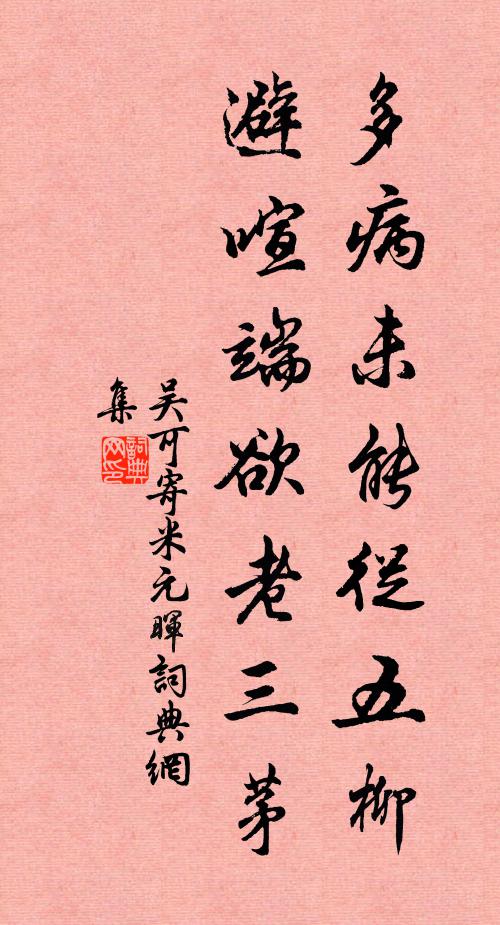 多病未能從五柳
避喧端欲老三茅
吴可寄米元暉詞典網
集
詞典
网印